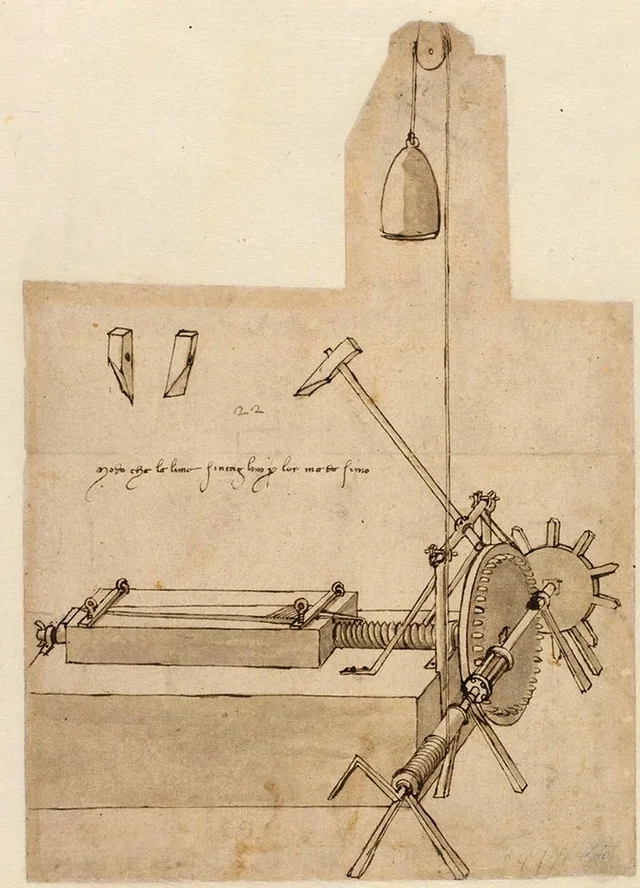 22
modo che le lime sintaglino p lor medesimo